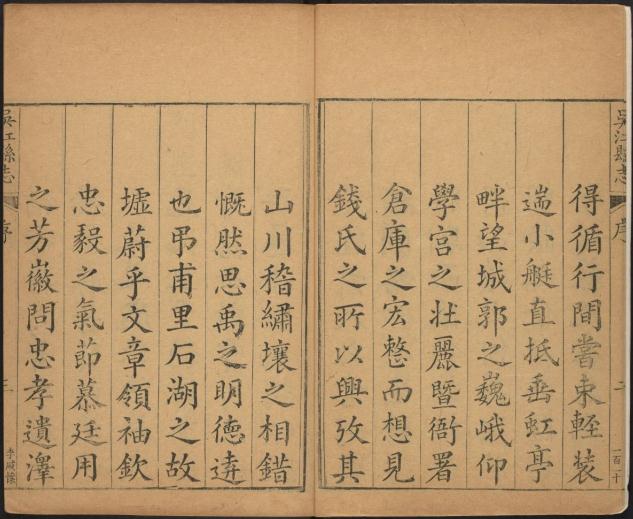 吳江縣志
序
二
一百二十
得循行間嘗束輕裝
遄小艇直抵垂虹亭
畔望城郭之巍峨仰
學宮之壯麗暨衙署
倉庫之宏整而想見
錢氏之所以興攷其
山川稽繡壤之相錯
慨然思禹之明德遠
也弔甫里石湖之故
墟蔚乎文章領袖欽
忠毅之氣節慕廷用
之芳徽問忠孝遺澤
吳江縣志
序
三